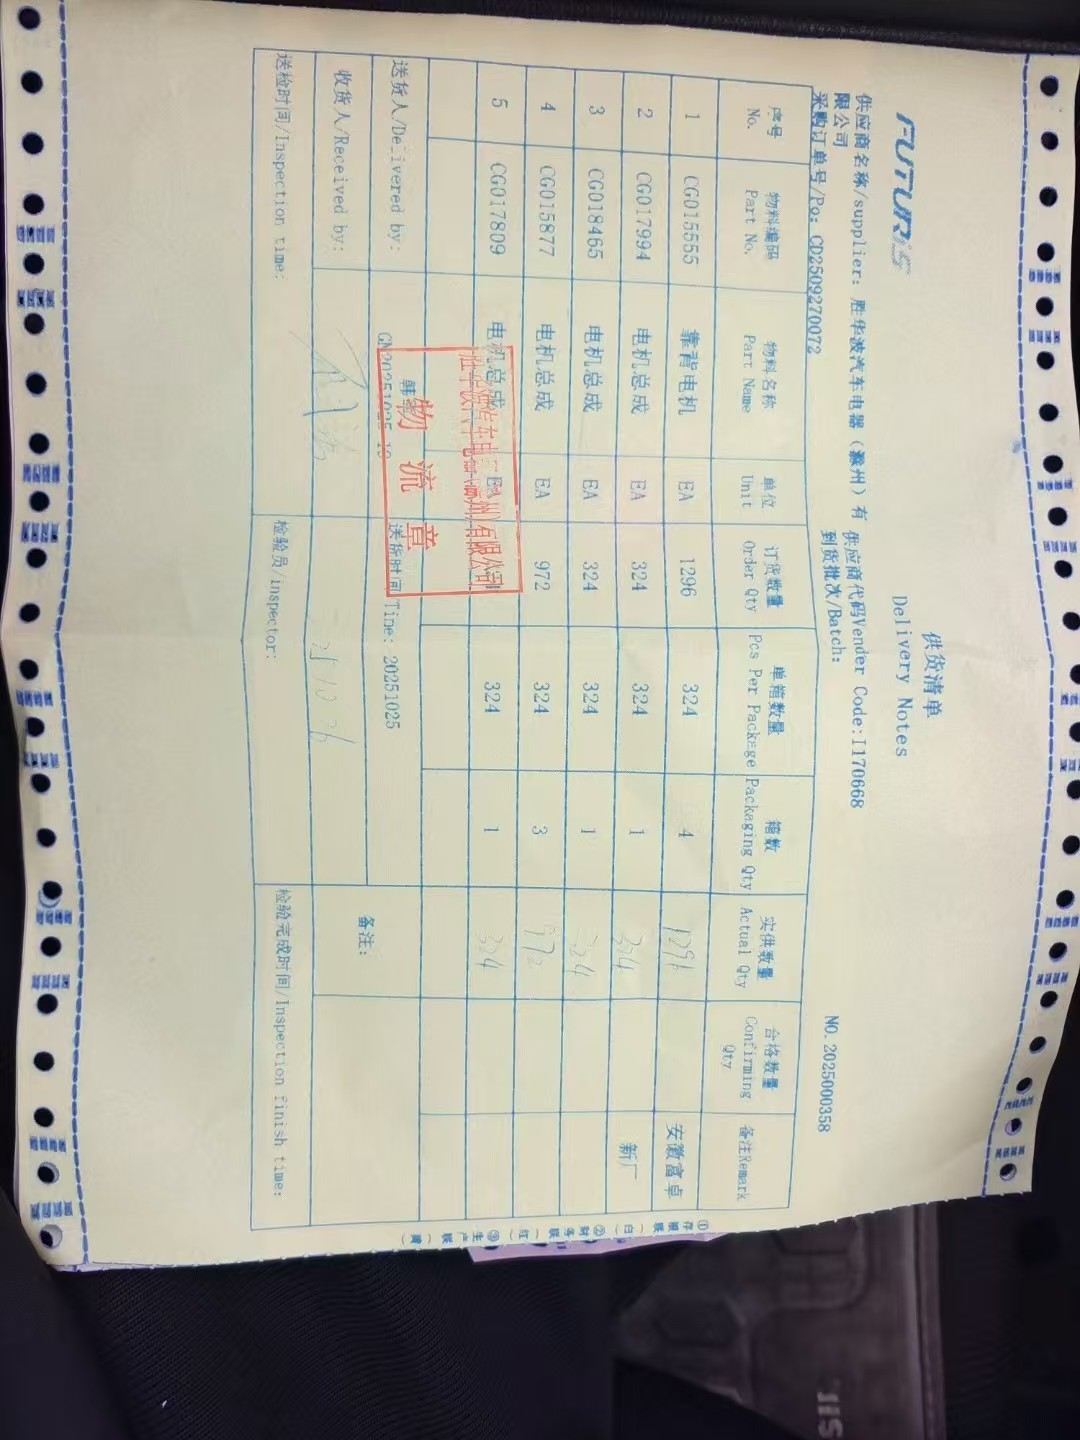 FUTURiS
供货清单
Delivery Notes
供应商名称/supplier: 胜华波汽车电器（滁州）有限公司
供应商代码Vender Code:I170668
NO. 2025000358
采购订单号/Po: CD2509270072
到货批次/Batch:
序号 No. 物料编码 Part No. 物料名称 Part Name 单位 Unit 订货数量 Order Qty 单箱数量 Pcs Per Package 箱数 Packaging Qty 实供数量 Actual Qty 合格数量 Confirming Qty 备注Remark
1 CG015555 靠背电机 EA 1296 324 4 1296 安徽富卓
2 CG017994 电机总成 EA 324 324 1 324 新厂
3 CG018465 电机总成 EA 324 324 1 324
4 CG015877 电机总成 EA 972 324 3 972
5 CG017809 电机总成 EA 324 1 324
送货人/Delivered by: 韩
GN20251025-
送货时间/Time: 20251025
备注:
收货人/Received by:
送检时间/Inspection time:
检验员/inspector:
检验完成时间/Inspection finish time:
有限公司
物流章
①存根联（白）②财务联（红）③生产联（黄）